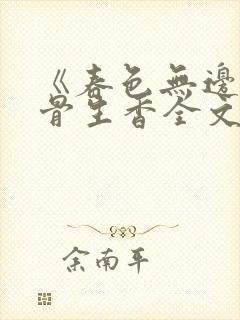 《春色無邊
骨生香全文
余南平